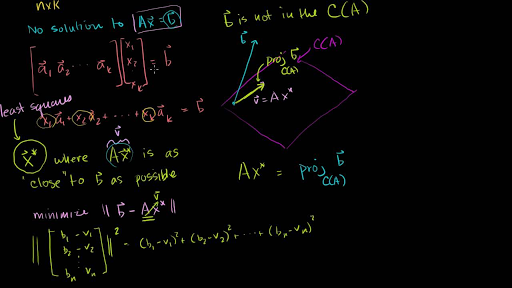 n x k
No solution to Ax⃗ = b⃗
[a⃗₁ a⃗₂ ... a⃗ₖ] [x₁ x₂ ⋮ xₖ] = b⃗
x₁a⃗₁ + x₂a⃗₂ + ... + xₖa⃗ₖ = b⃗
least squares
v⃗
x⃗* where Ax⃗* is as
"close" to b⃗ as possible
minimize || b⃗ - Ax⃗* ||
v⃗
|| [b₁ - v₁ b₂ - v₂ ⋮ bₙ - vₙ] ||² = (b₁ - v₁)² + (b₂ - v₂)² + ... + (bₙ - vₙ)²
b⃗ is not in the C(A)
b⃗
C(A)
proj b⃗
C(A)
v⃗ = Ax*
Ax* = proj b⃗
C(A)